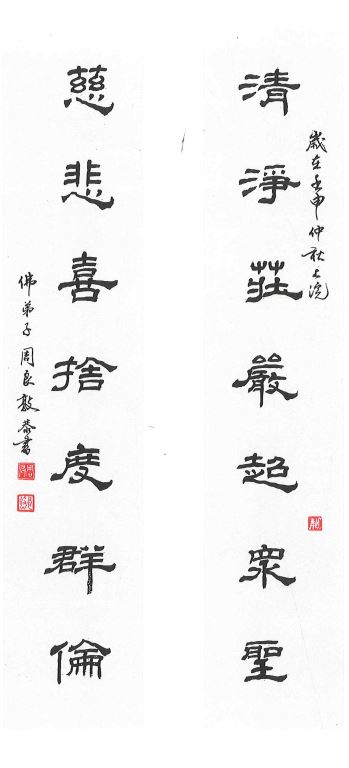 歲在壬申仲秋上浣
清淨莊嚴超眾聖
慈悲喜捨度群倫
佛弟子周良敦恭書